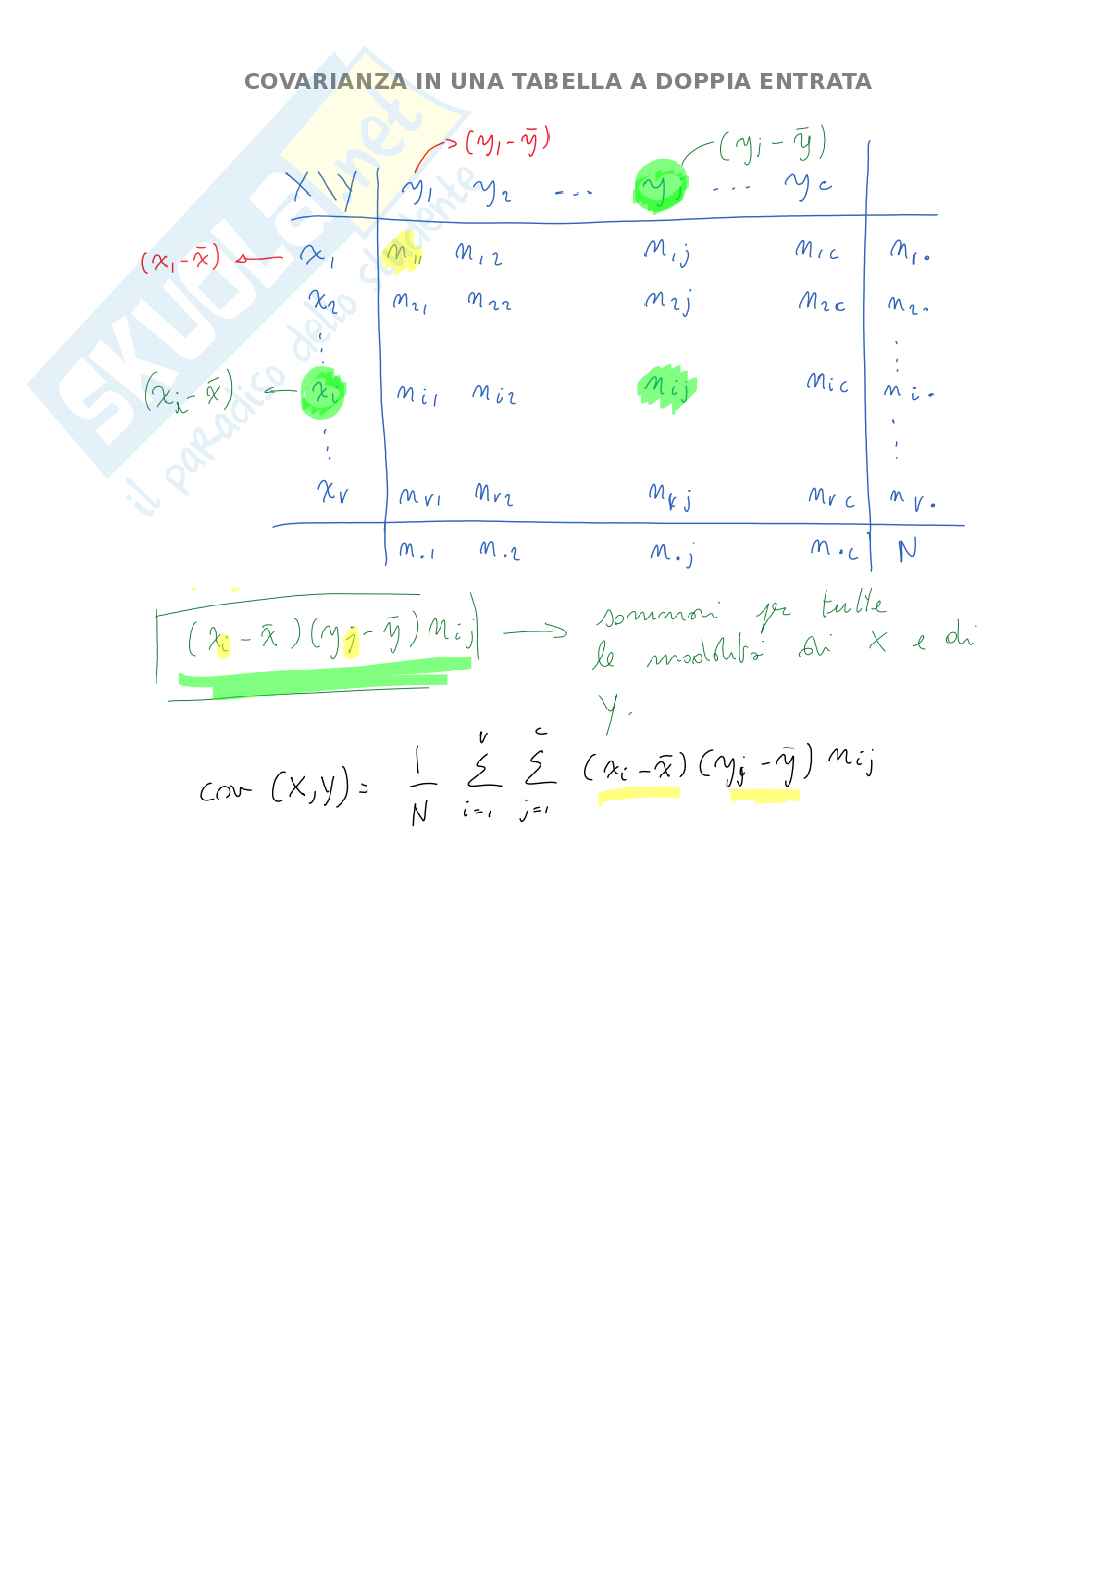 COVARIANZA IN UNA TABELLA A DOPPIA ENTRATA
(y₁ - ȳ) (yⱼ - ȳ)
X\Y y₁ y₂ ... yⱼ ... y_c
(x₁ - x̄) x₁ n₁₁ n₁₂ n₁ⱼ n₁c n₁.
x₂ n₂₁ n₂₂ n₂ⱼ n₂c n₂.
(xᵢ - x̄) xᵢ nᵢ₁ nᵢ₂ nᵢⱼ nᵢc nᵢ.
x_r n_r1 n_r2 n_rj n_rc n_r.
n.₁ n.₂ n.ⱼ n.c N
(xᵢ - x̄)(yⱼ - ȳ) nᵢⱼ → sommari per tutte
le modalità di X e di
Y.
cov (X,Y) = 1/N Σ_{i=1}^{r} Σ_{j=1}^{c} (xᵢ - x̄)(yⱼ - ȳ) nᵢⱼ
SKUOLA.net
il paradiso dello studente